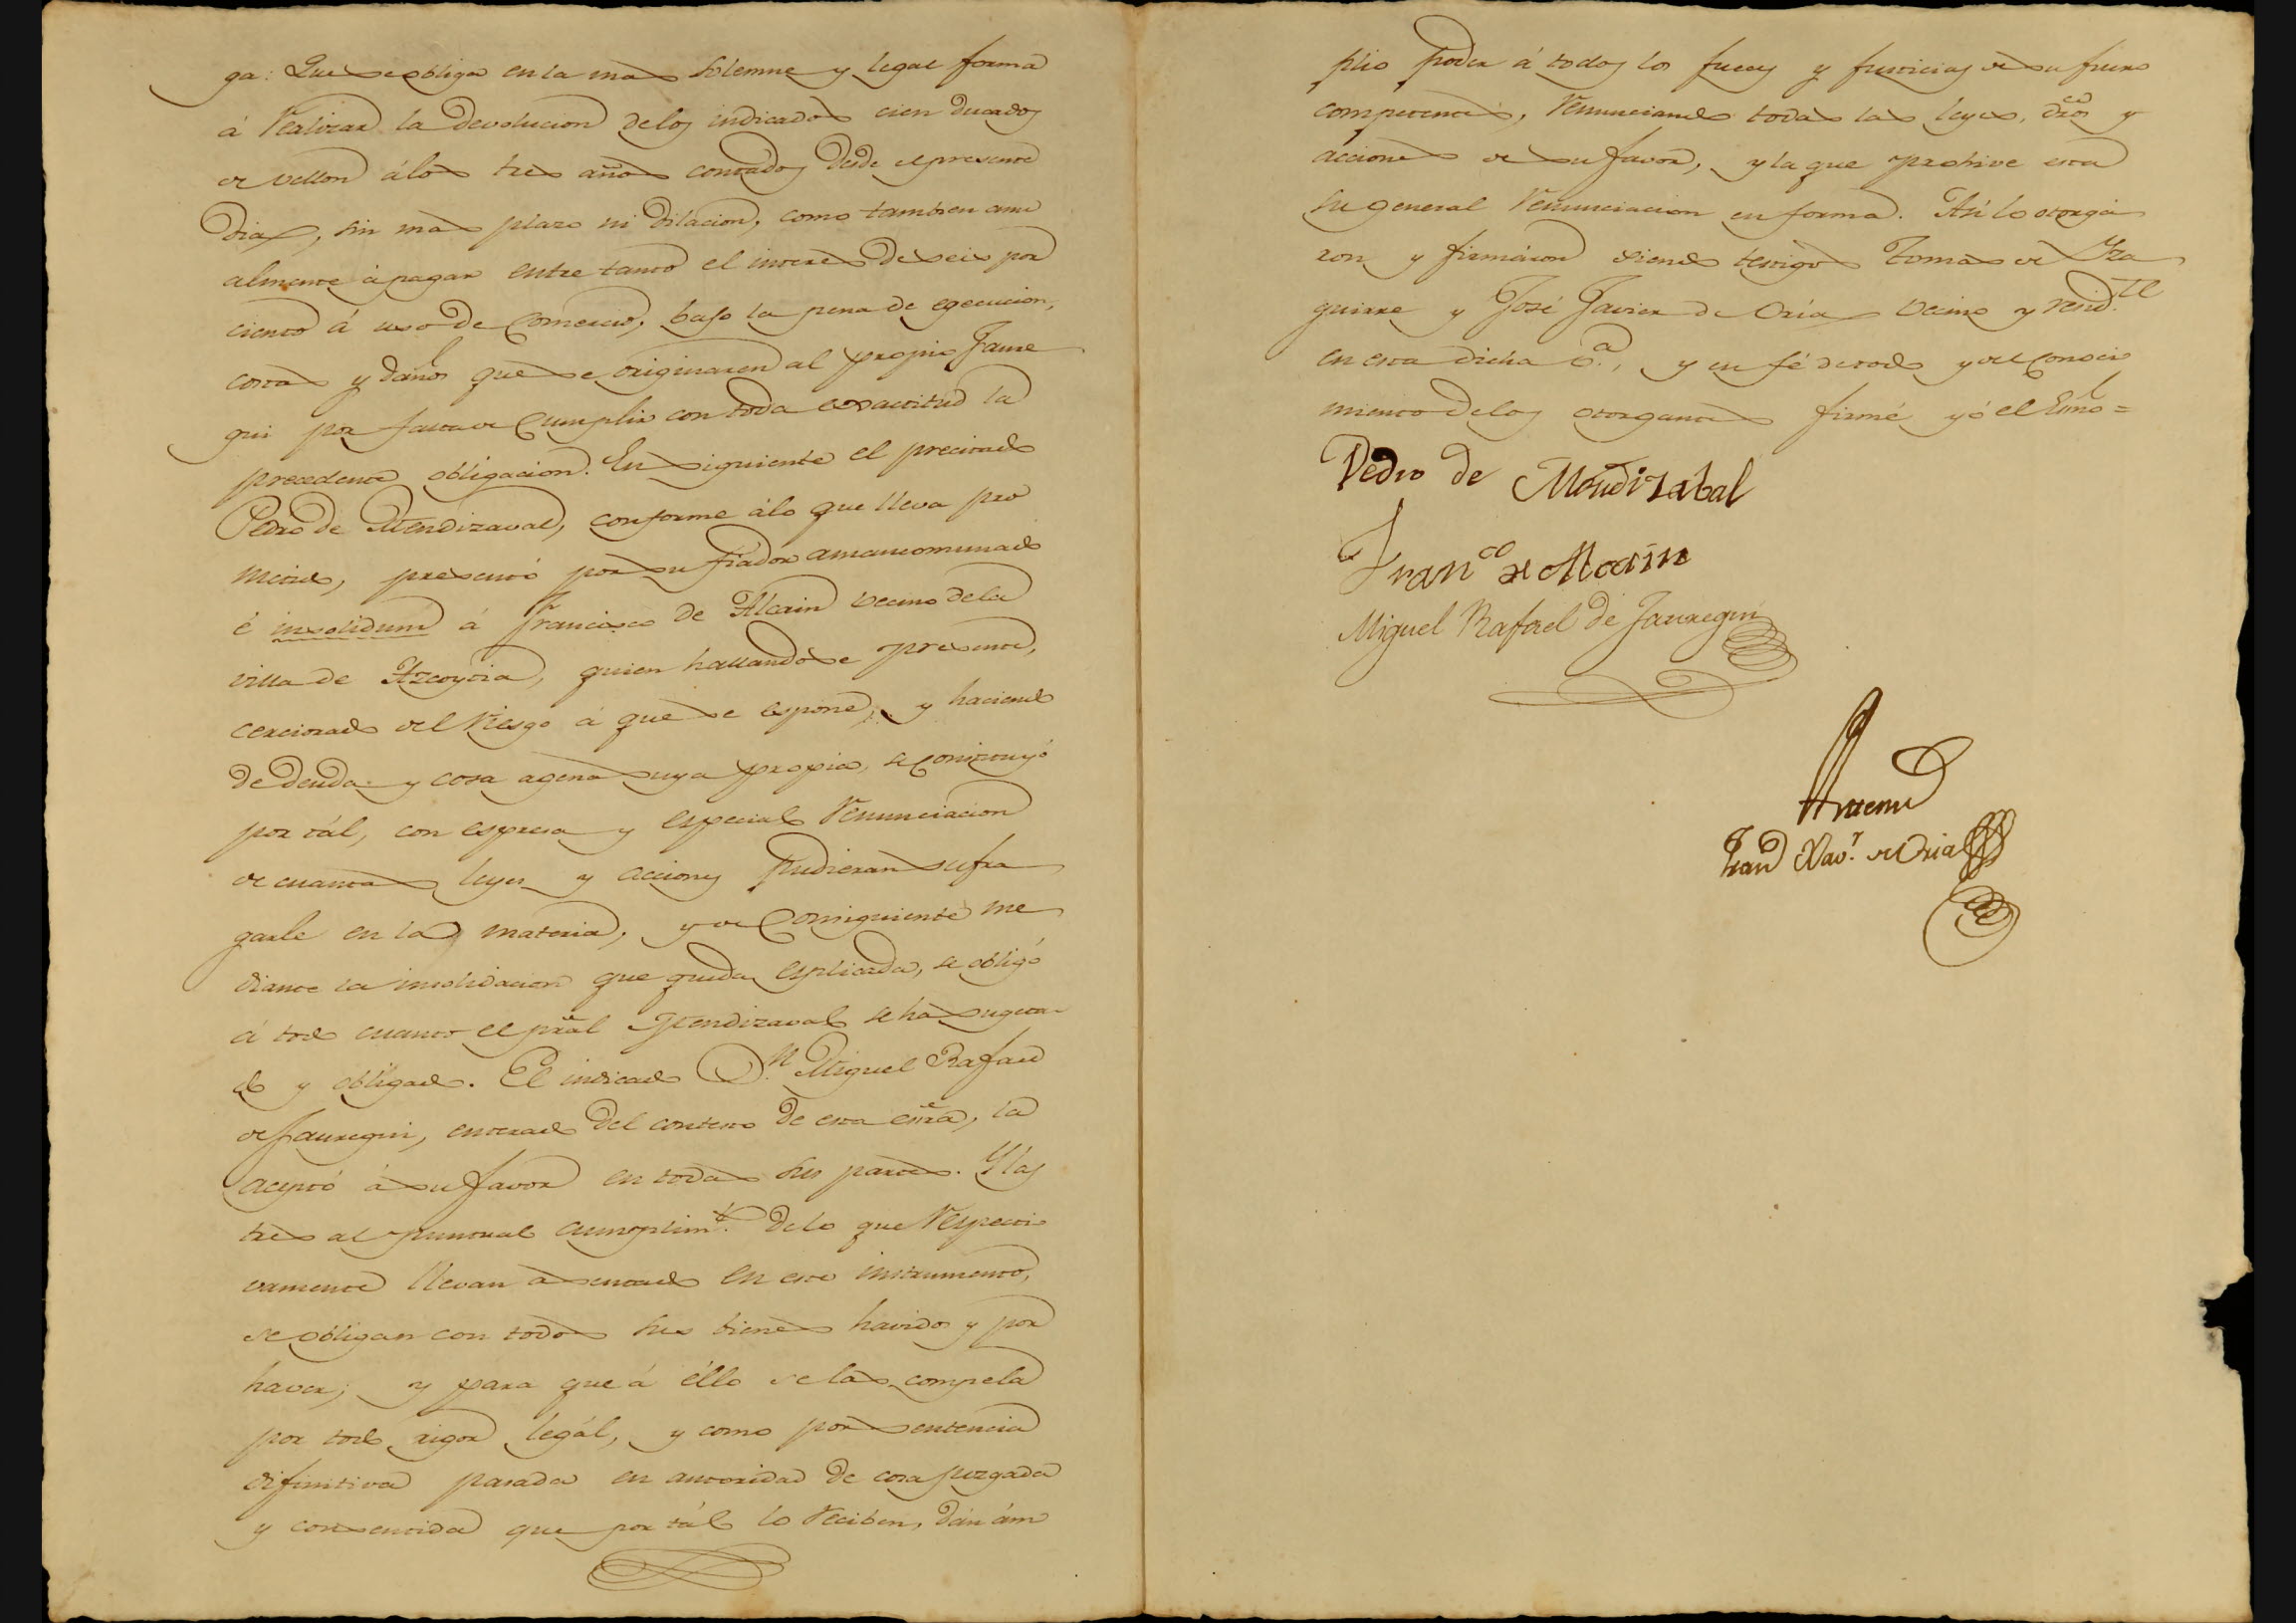 ga: Que se obliga en la mas solemne y legal forma
á realizar la devolucion delos indicados cien ducados
de vellon álos tres años contados desde el presente
dia, sin mas plazo ni dilacion, como tambien anu
almente á pagar entre tanto el interes de seis por
ciento á uso de Comercio, bajo la pena de egecucion,
costas y daños que se originaren al propio Jaure
gui por falta de cumplir con toda exactitud la
precedente obligacion. En siguiente el precitado
Pedro de Mendizaval, conforme álo que lleva pro
metido, presentó por su fiador amancomunado
é insolidum á Francisco de Alcain vecino dela
villa de Azcoytia, quien hallandose presente,
cerciorado del riesgo á que se espone, y haciendo
de deuda y cosa agena suya propia, se constituyó
por tál, con espresa y especial renunciacion
de cuantas leyes y acciones pudieran sufra
garle en la materia, y de consiguiente me
diante la insolidacion que queda esplicada, se obligó
á todo cuanto el pral Mendizaval se ha sugeta
do y obligado. El indicado D.n Miguel Rafael
de Jauregui, enterado del contesto de esta esra, la
aceptó á su favor en todas sus partes. Y los
tres al puntual cumplim.to delo que respecti
vamente llevan asentado en este instrumento,
se obligan con todos sus bienes havidos y por
haver; y para que á éllo se las compela
por todo rigor legál, y como por sentencia
difinitiva pasada en autoridad de cosa juzgada
y consentida que por tál lo reciben, dán ám
plio poder á todos los Jueces y Justicias de su fuero
competentes, renunciando todas las leyes, dros y
acciones de su favor, y la que prohive esta
su general renunciacion en forma. Así lo otorgá
ron y firmáron siendo testigos Tomas de Yza
guirre y José Javier de Oria vecino y resid.te
en esta dicha v.a, y en fé de todo y del conoci
miento delos otorgantes firmé yó el Esno =
Pedro de Mendizabal
Fran.co de Alcain
Miguel Rafael de Jauregui
Antemi
Juan Xav.r de Oria